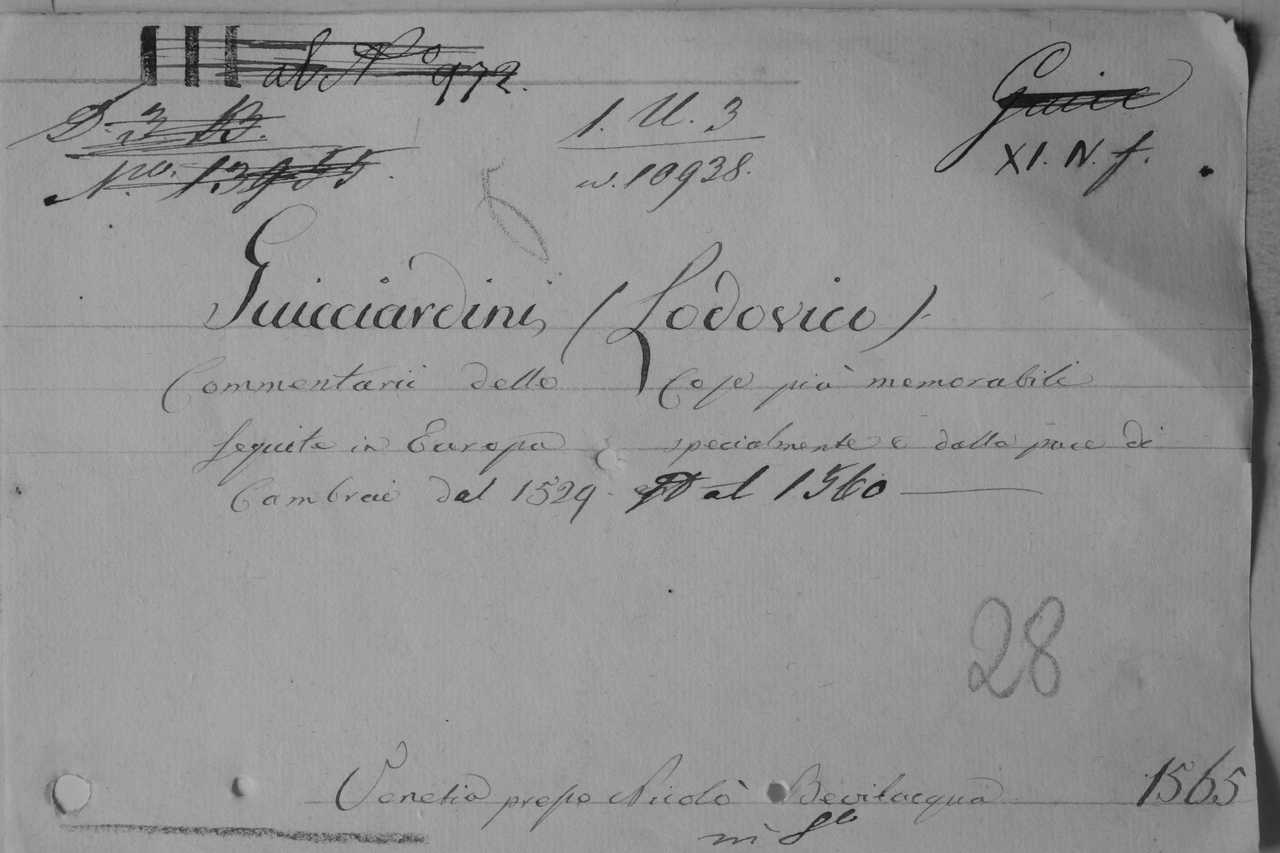 III ab N° 972.
D. 3 B.
1. U. 3
Guicc
N.ro 13955
n. 10938.
XI. N. f.
Guicciardini (Lodovico)
Commentarii delle Cose più memorabili
seguite in Europa specialmente è dalla pace di
Cambrai dal 1529. al 1560
28
Venetia presso Nicolò Bevilacqua 1565
in 8°